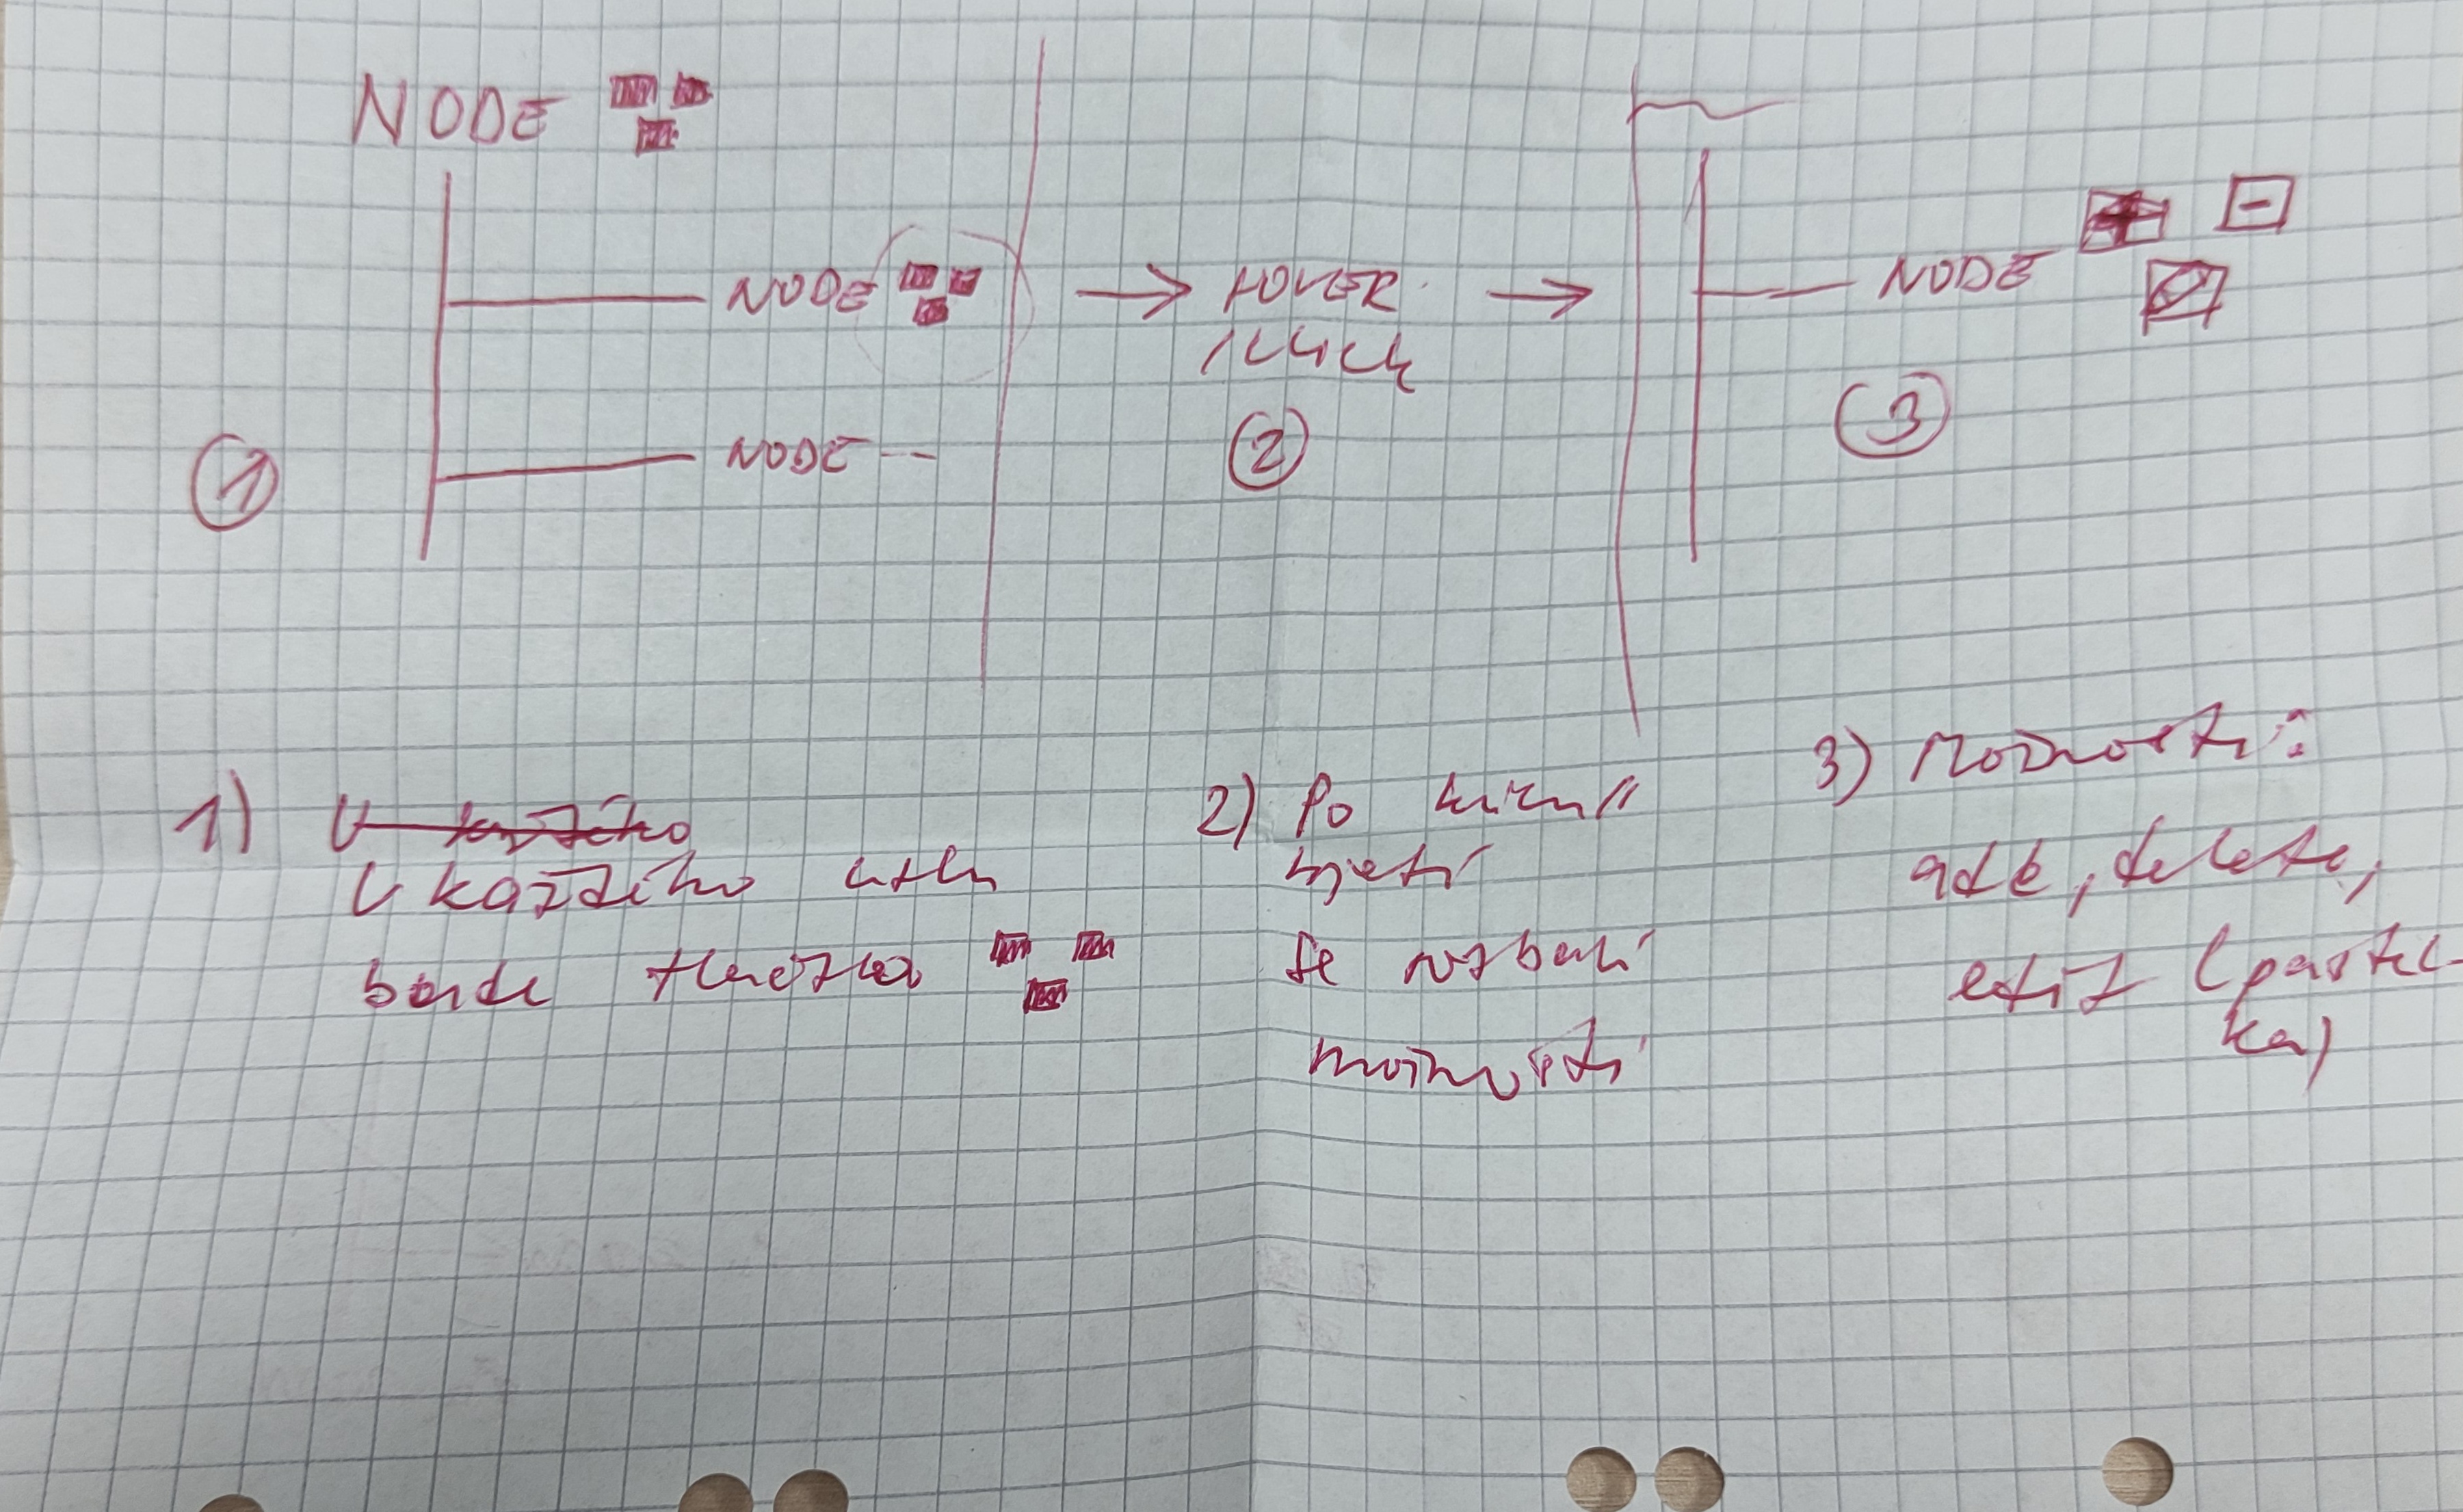 NODE
NODE
NODE
1
HOVER
/ CLICK
2
NODE
+ -
3
1) U každého
U každého uzlu
bude tlačítko
2) Po kliknutí
najetí
se rozbalí
možnosti
3) Možnosti:
add, delete,
edit (pastel-
ka)